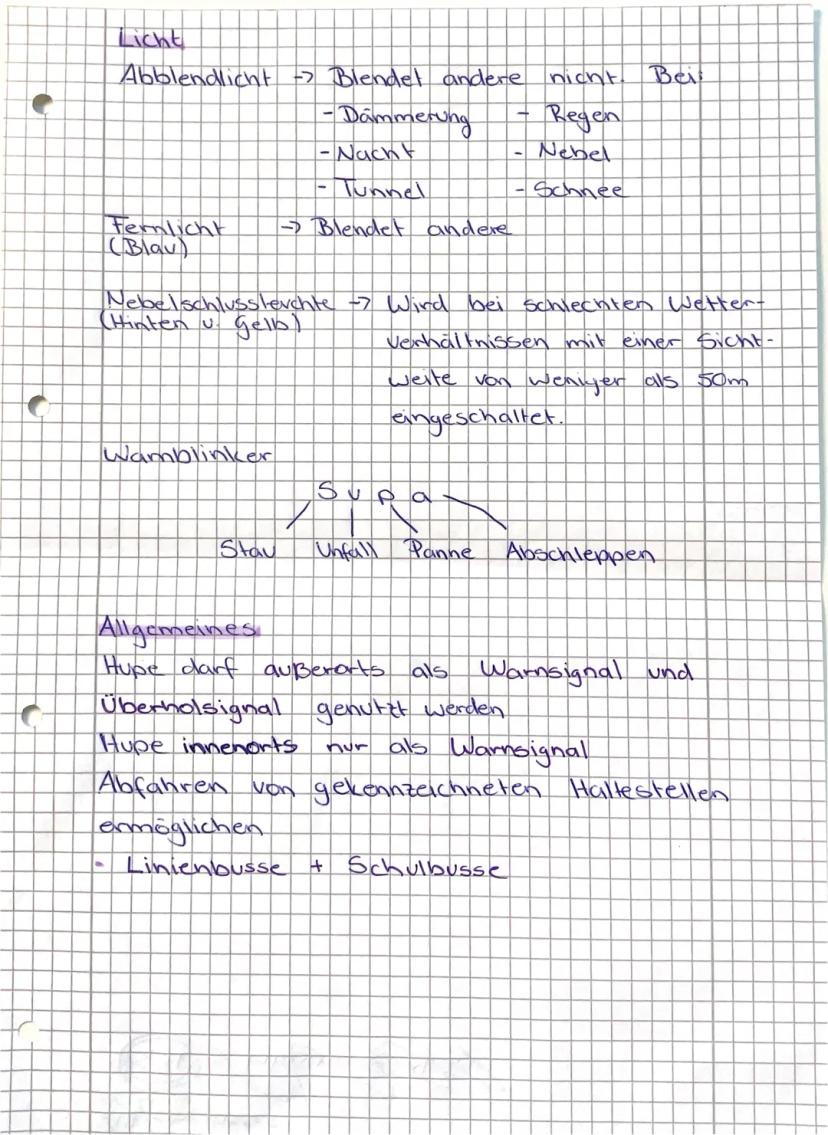 Licht
Abblendlicht -> Blendet andere nicht. Bei:
- Dämmerung - Regen
- Nacht - Nebel
- Tunnel - Schnee
Fernlicht -> Blendet andere
(Blau)
Nebelschlussleuchte -> Wird bei schlechten Wetter-
(Hinten u. Gelb)
verhältnissen mit einer Sicht-
weite von weniger als 50m
eingeschaltet.
Warnblinker
S u p a
Stau Unfall Panne Abschleppen
Allgemeines
Hupe darf außerorts als Warnsignal und
Überholsignal genutzt werden
Hupe innenorts nur als Warnsignal
Abfahren von gekennzeichneten Haltestellen
ermöglichen
- Linienbusse + Schulbusse